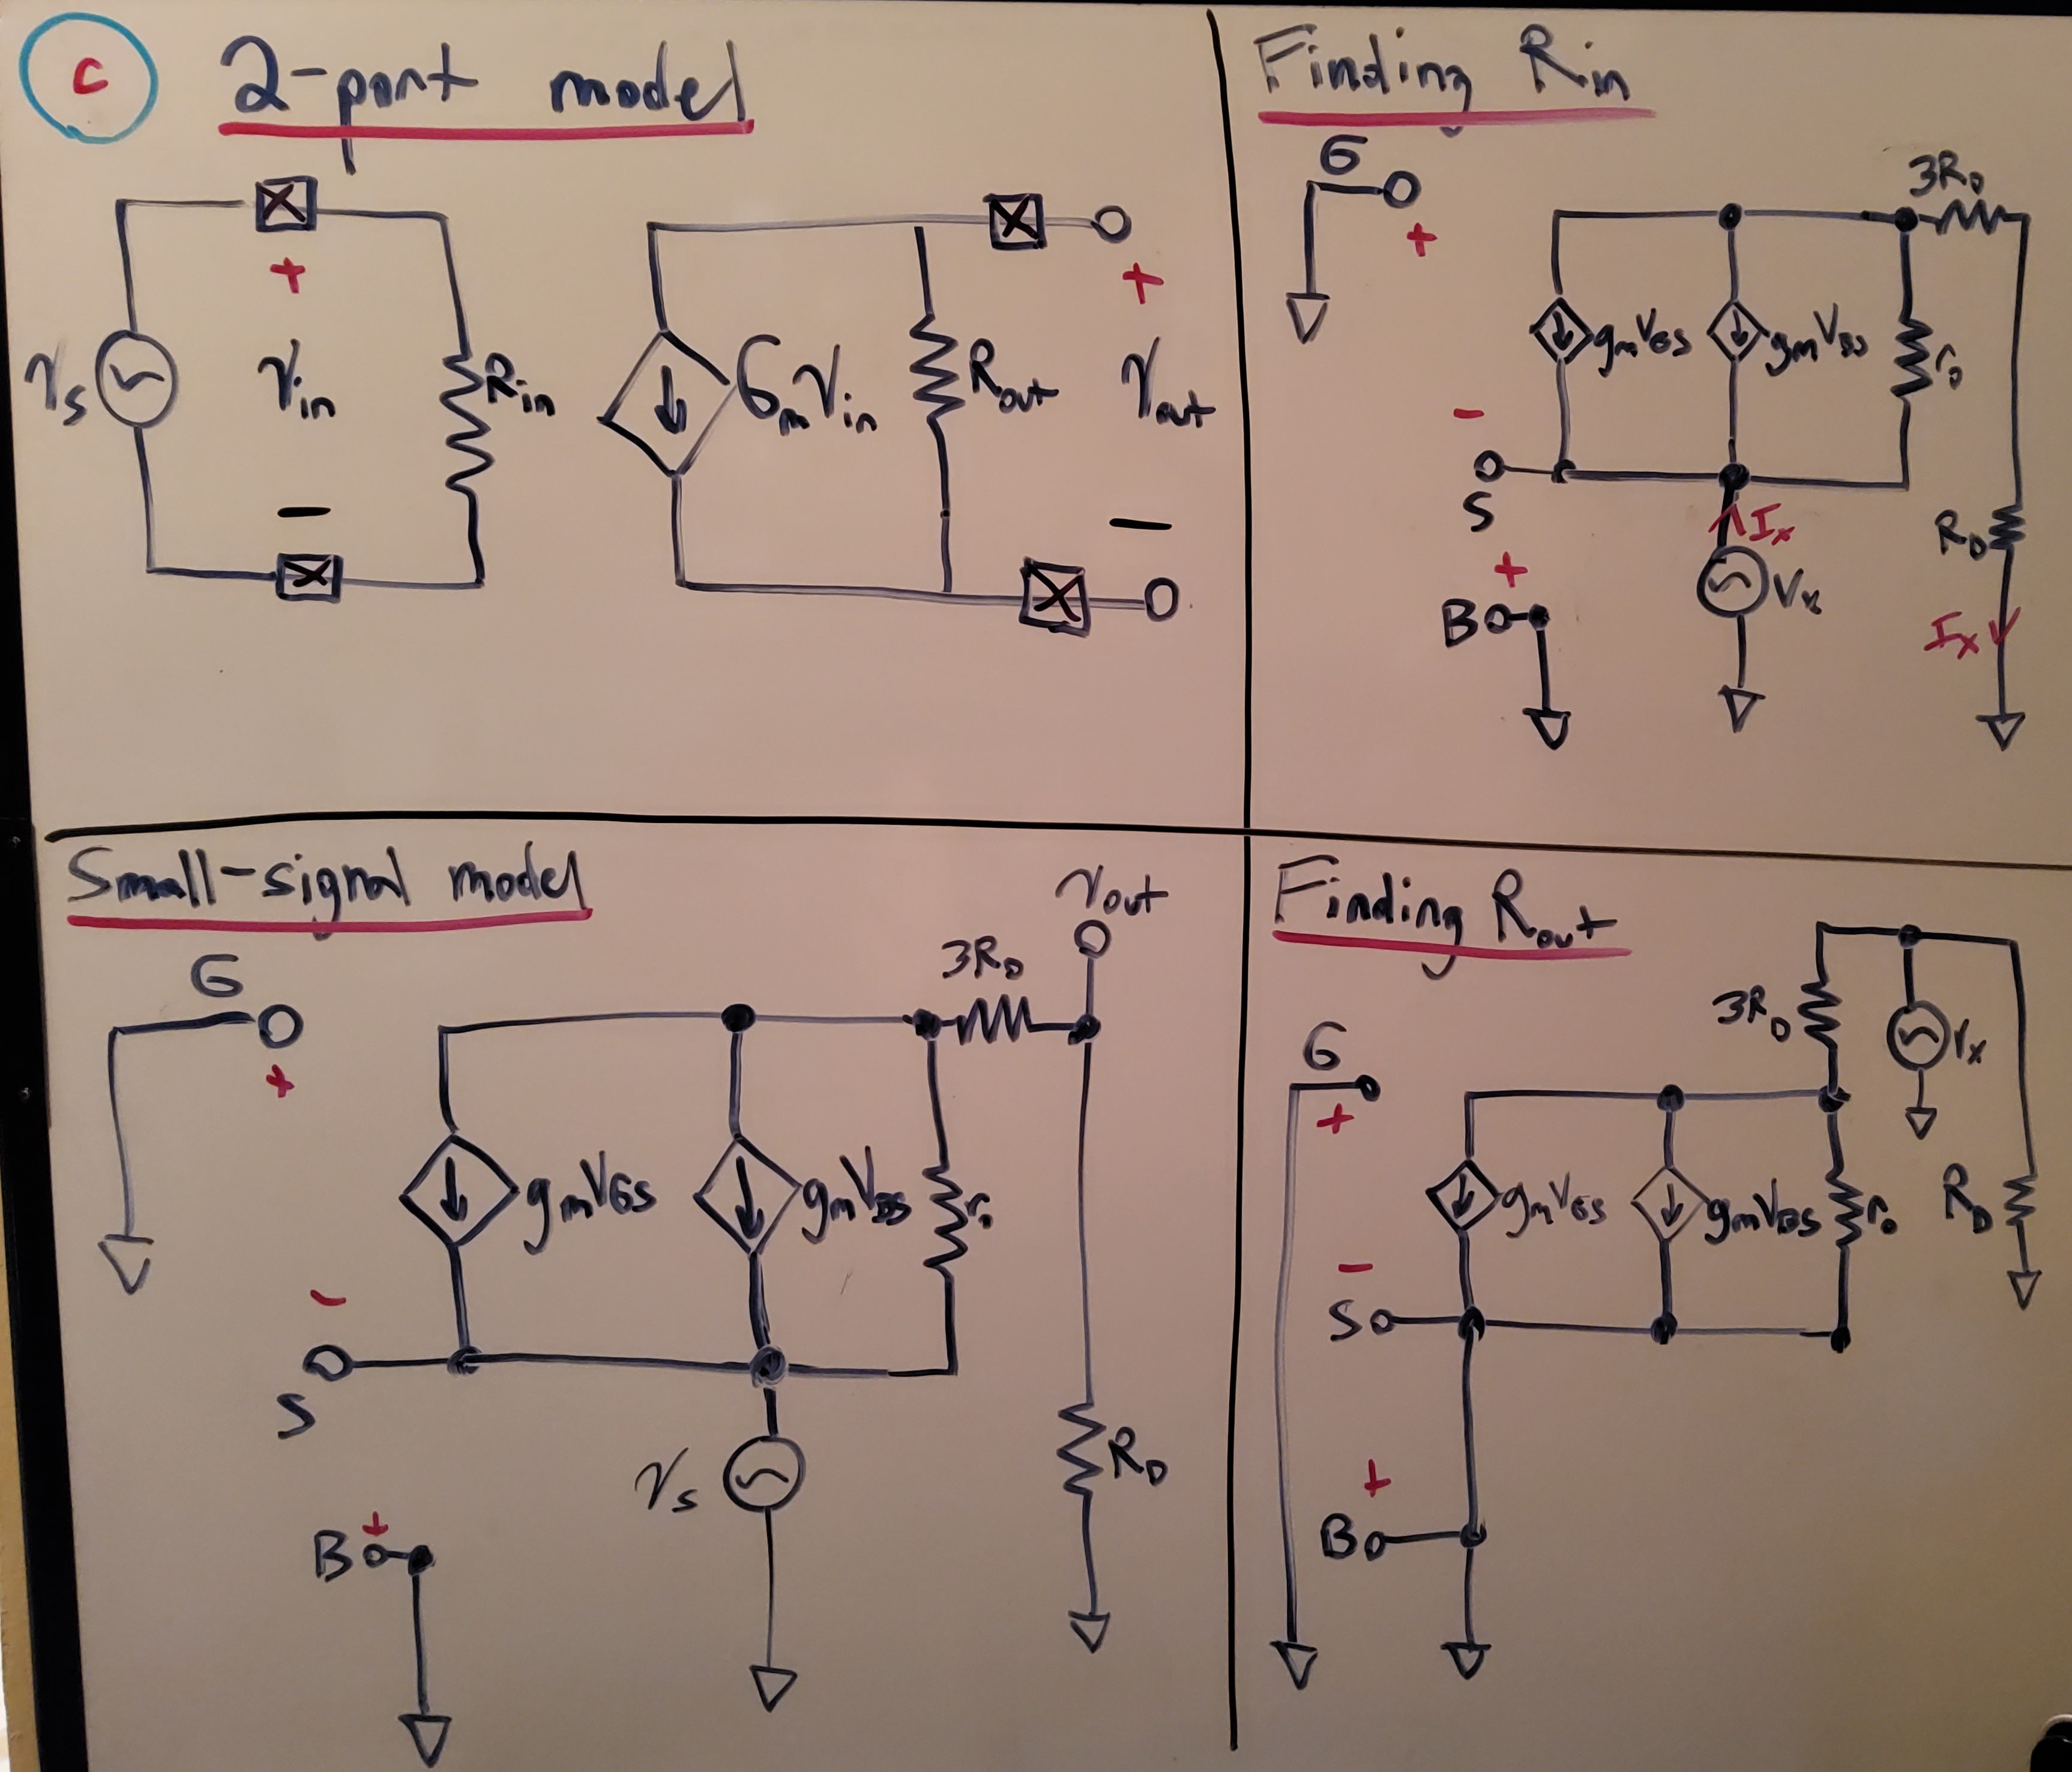 C
2-port model
+
+
vs
vin
Rin
Gmvin
Rout
vout
−
−
Finding Rin
G
+
3RD
gmVGS
gmVBS
ro
−
S
Ix
+
RD
B
Vx
Ix
Small-signal model
vout
G
3RD
+
gmVGS
gmVBS
ro
−
S
vs
RD
+
B
Finding Rout
3RD
Vx
G
+
gmVGS
gmVBS
ro
RD
−
S
+
B